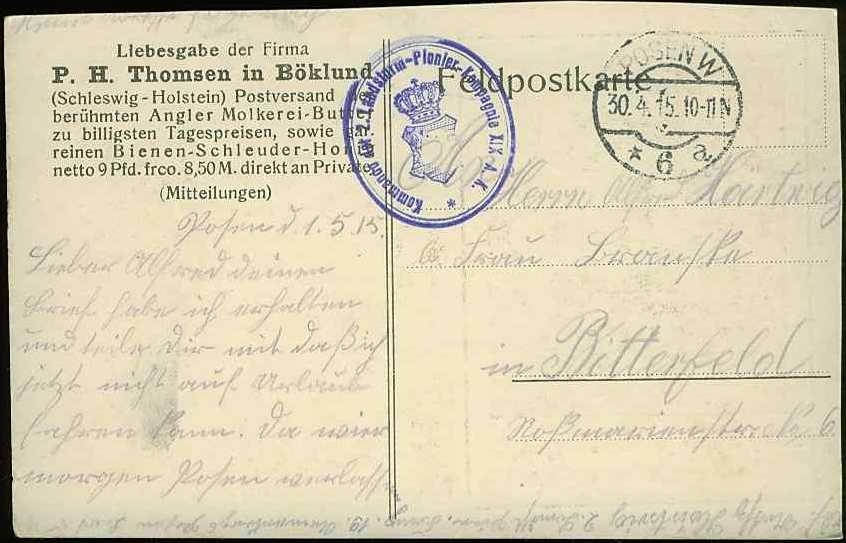 Liebesgabe der Firma
P. H. Thomsen in Böklund
(Schleswig-Holstein) Postversand
berühmten Angler Molkerei-Butt
zu billigsten Tagespreisen, sowie gar
reinen Bienen-Schleuder-Hon
netto 9 Pfd. frco. 8,50 M. direkt an Private
(Mitteilungen)
Posen d 1.5.15.
Lieber Alfred deinen
Brief habe ich erhalten
und teile Dir mit daß ich
jetzt nicht auf Urlaub
fahren kann. Da wier
morgen Posen verlass
Kommando der 2. Landsturm-Pionier-Kompagnie XIX. A.K.
*
Feldpostkarte
POSEN W
30.4.15.10-11N
* 6 a
Herrn Hartwig
Frau Branske
in Bitterfeld
Roßmarienstr. 6